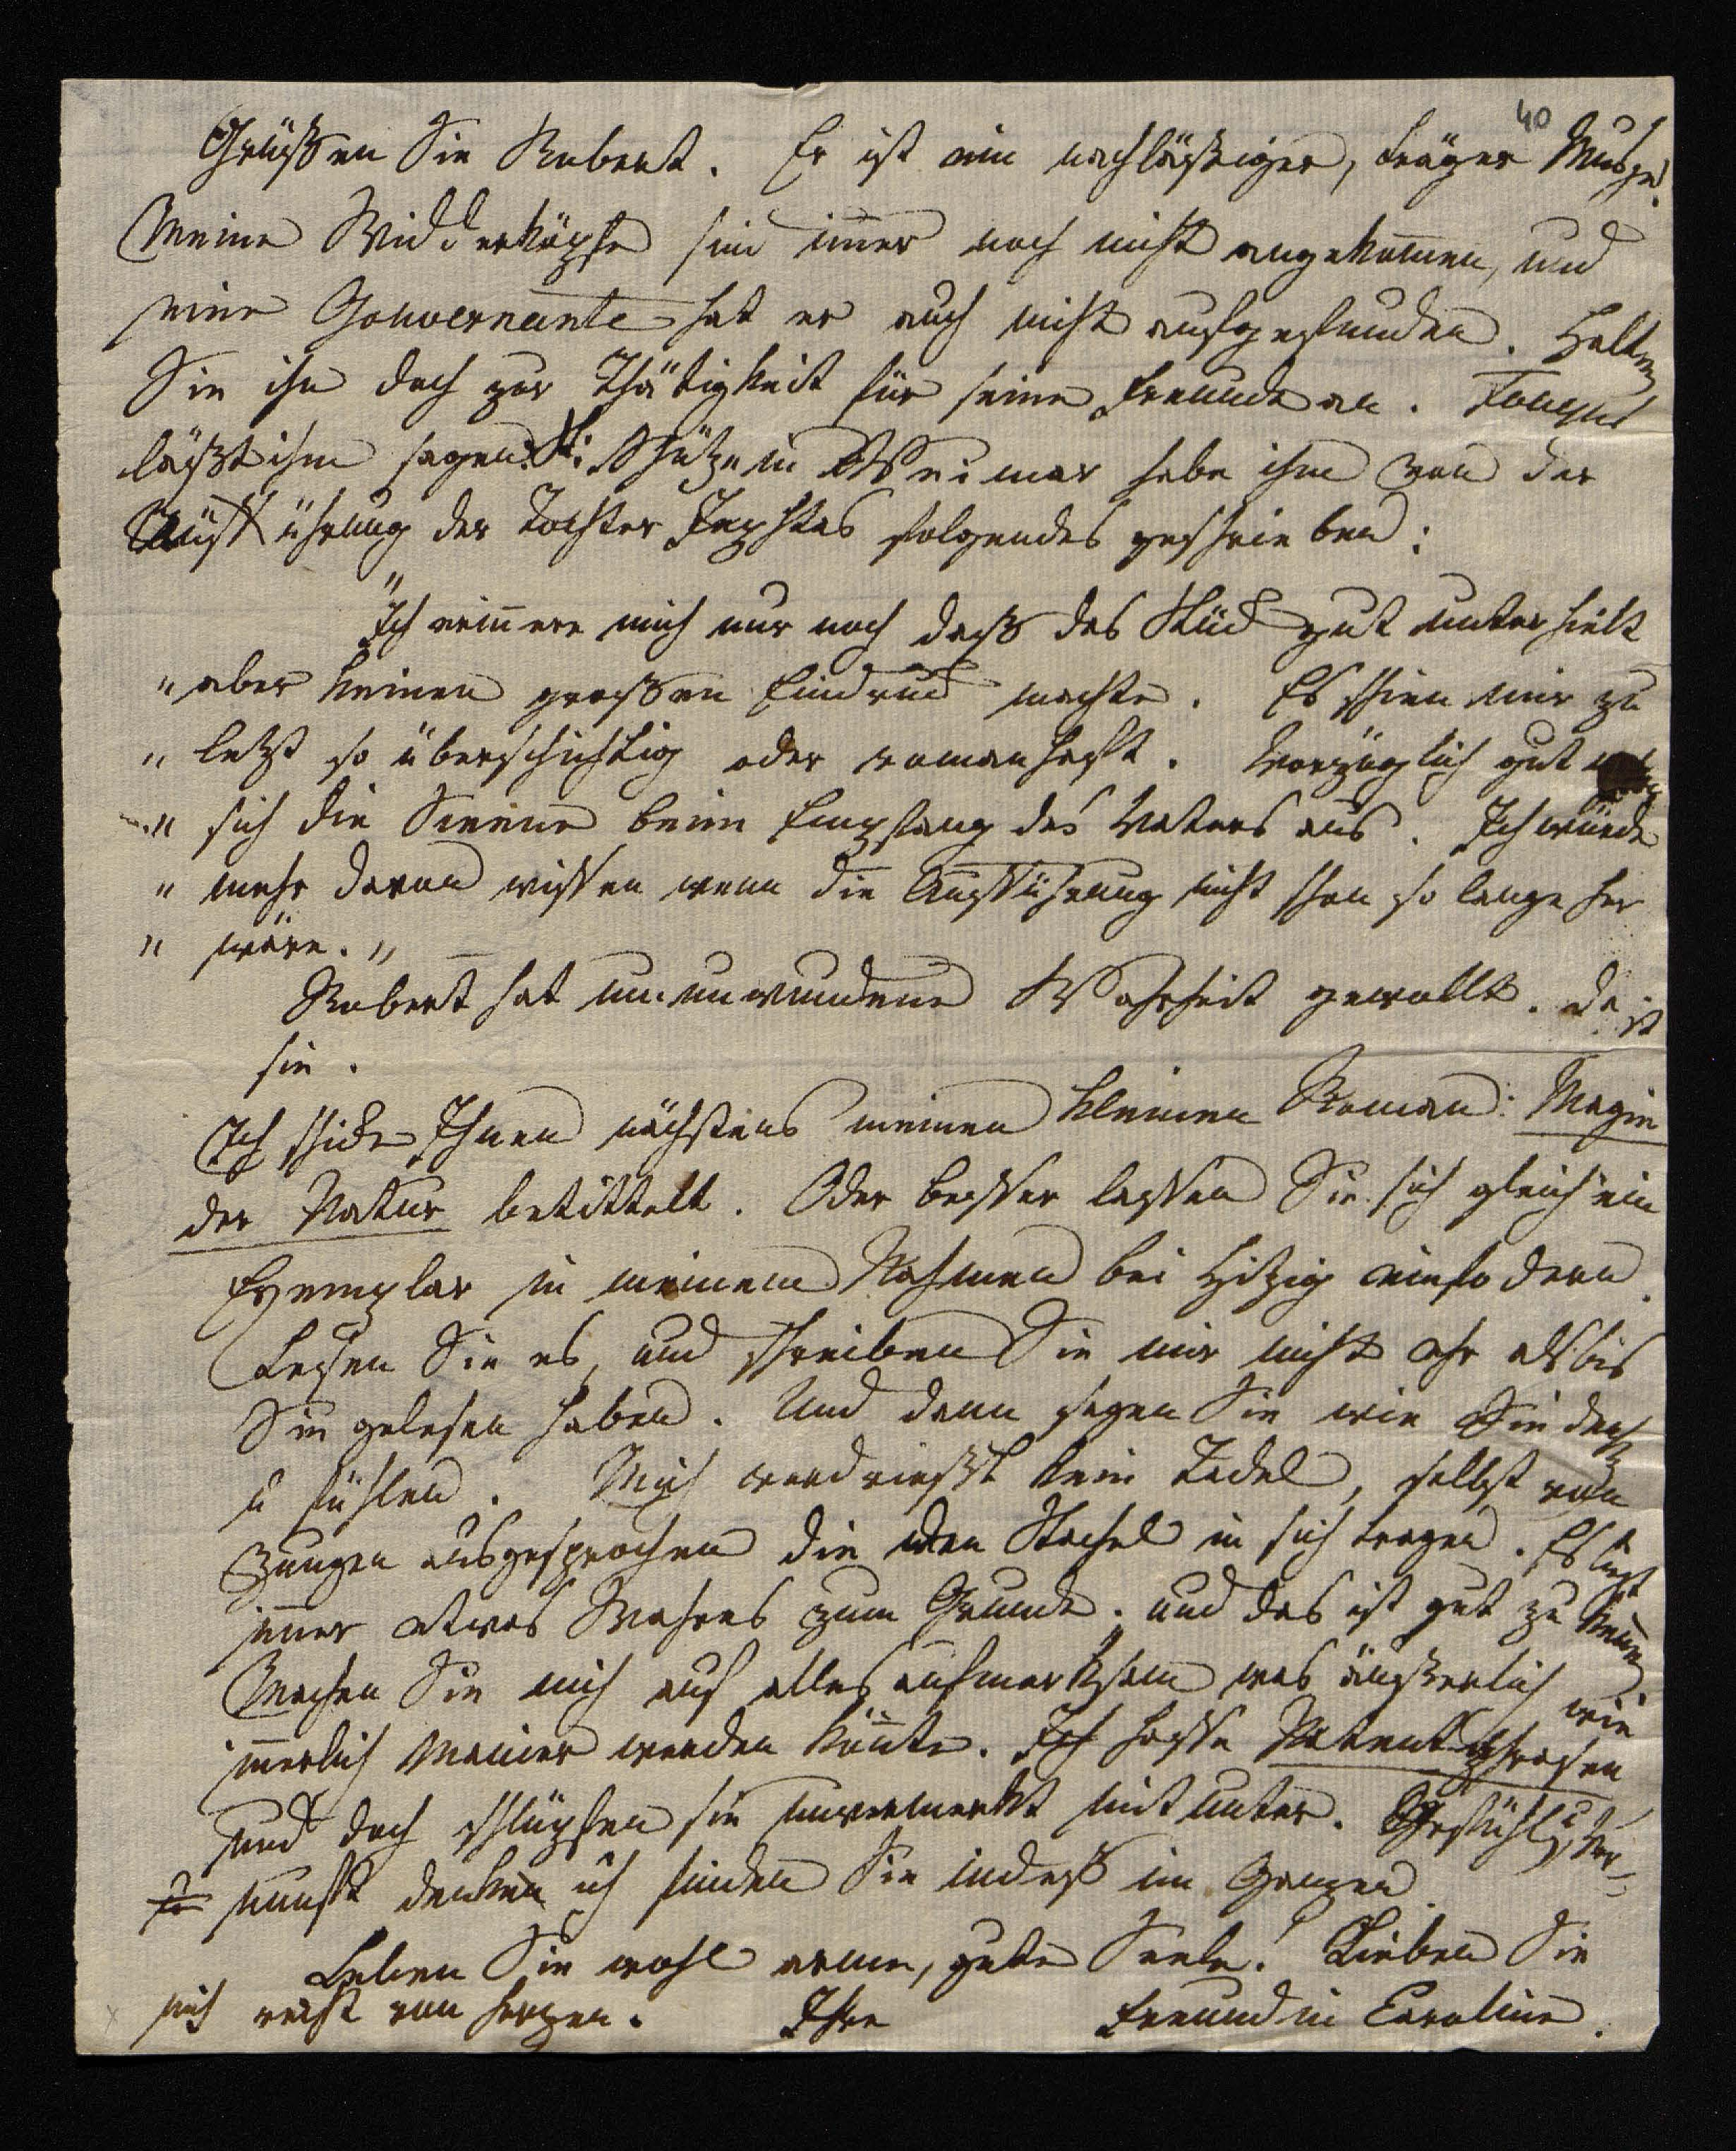 40
Grüßen Sie Robert. Er ist ein nachläßiger, träger Mensch.
Meine Widderköpfe sind im̄er noch nicht angekom̄en, und
eine Gouvernante hat er auch nicht aufgefunden. Halten
Sie ihn doch zur Thätigkeit für seine Freunde an. Fouqué
läßt ihm sagen: St: Schütze in Weimar habe ihm von der
Aufführung der Tochter Jephtas folgendes geschrieben:
"Ich erin̄ere mich nur noch daß das Stück gut unterhielt
"aber keinen großen Eindruck machte. Es schien mir zu
"letzt so übersichtig oder romanhaft. Vorzüglich gut
"sich die Scene beim Empfang des Vaters aus. Ich würde
"mehr davon wissen wenn die Aufführung nicht schon so lange her
"wäre."
Robert hat unumwundene Wahrheit gewollt. Da ist
sie.
Ich schicke Ihnen nächstens meinen kleinen Roman: Magie
der Natur betittelt. Oder besser lassen Sie sich gleich ein
Exemplar in meinem Nahmen bei Hitzig einfodern.
Lesen Sie es, und schreiben Sie mir nicht ehr als bis
Sie gelesen haben. Und dann sagen Sie wie Sie
u fühlen. Mich verdrießt kein Tadel, selbst von
Zungen ausgesprochen die den Stachel in sich tragen. Es liegt
im̄er etwas Wahres zum Grunde. und das ist gut zu ken̄en
Machen Sie mich auf alles aufmerksam was äußerlich wie
in̄erlich Manier werden kön̄te. Ich hasse Patentphrasen
und doch schlüpfen sie unvermerkt mit unter. Gefühl u Ver-
nunft denken ich finden Sie indeß im Ganzen
Leben Sie wohl arme, gute Seele! Lieben Sie
mich recht von Herzen. Ihre Freundin Caroline.